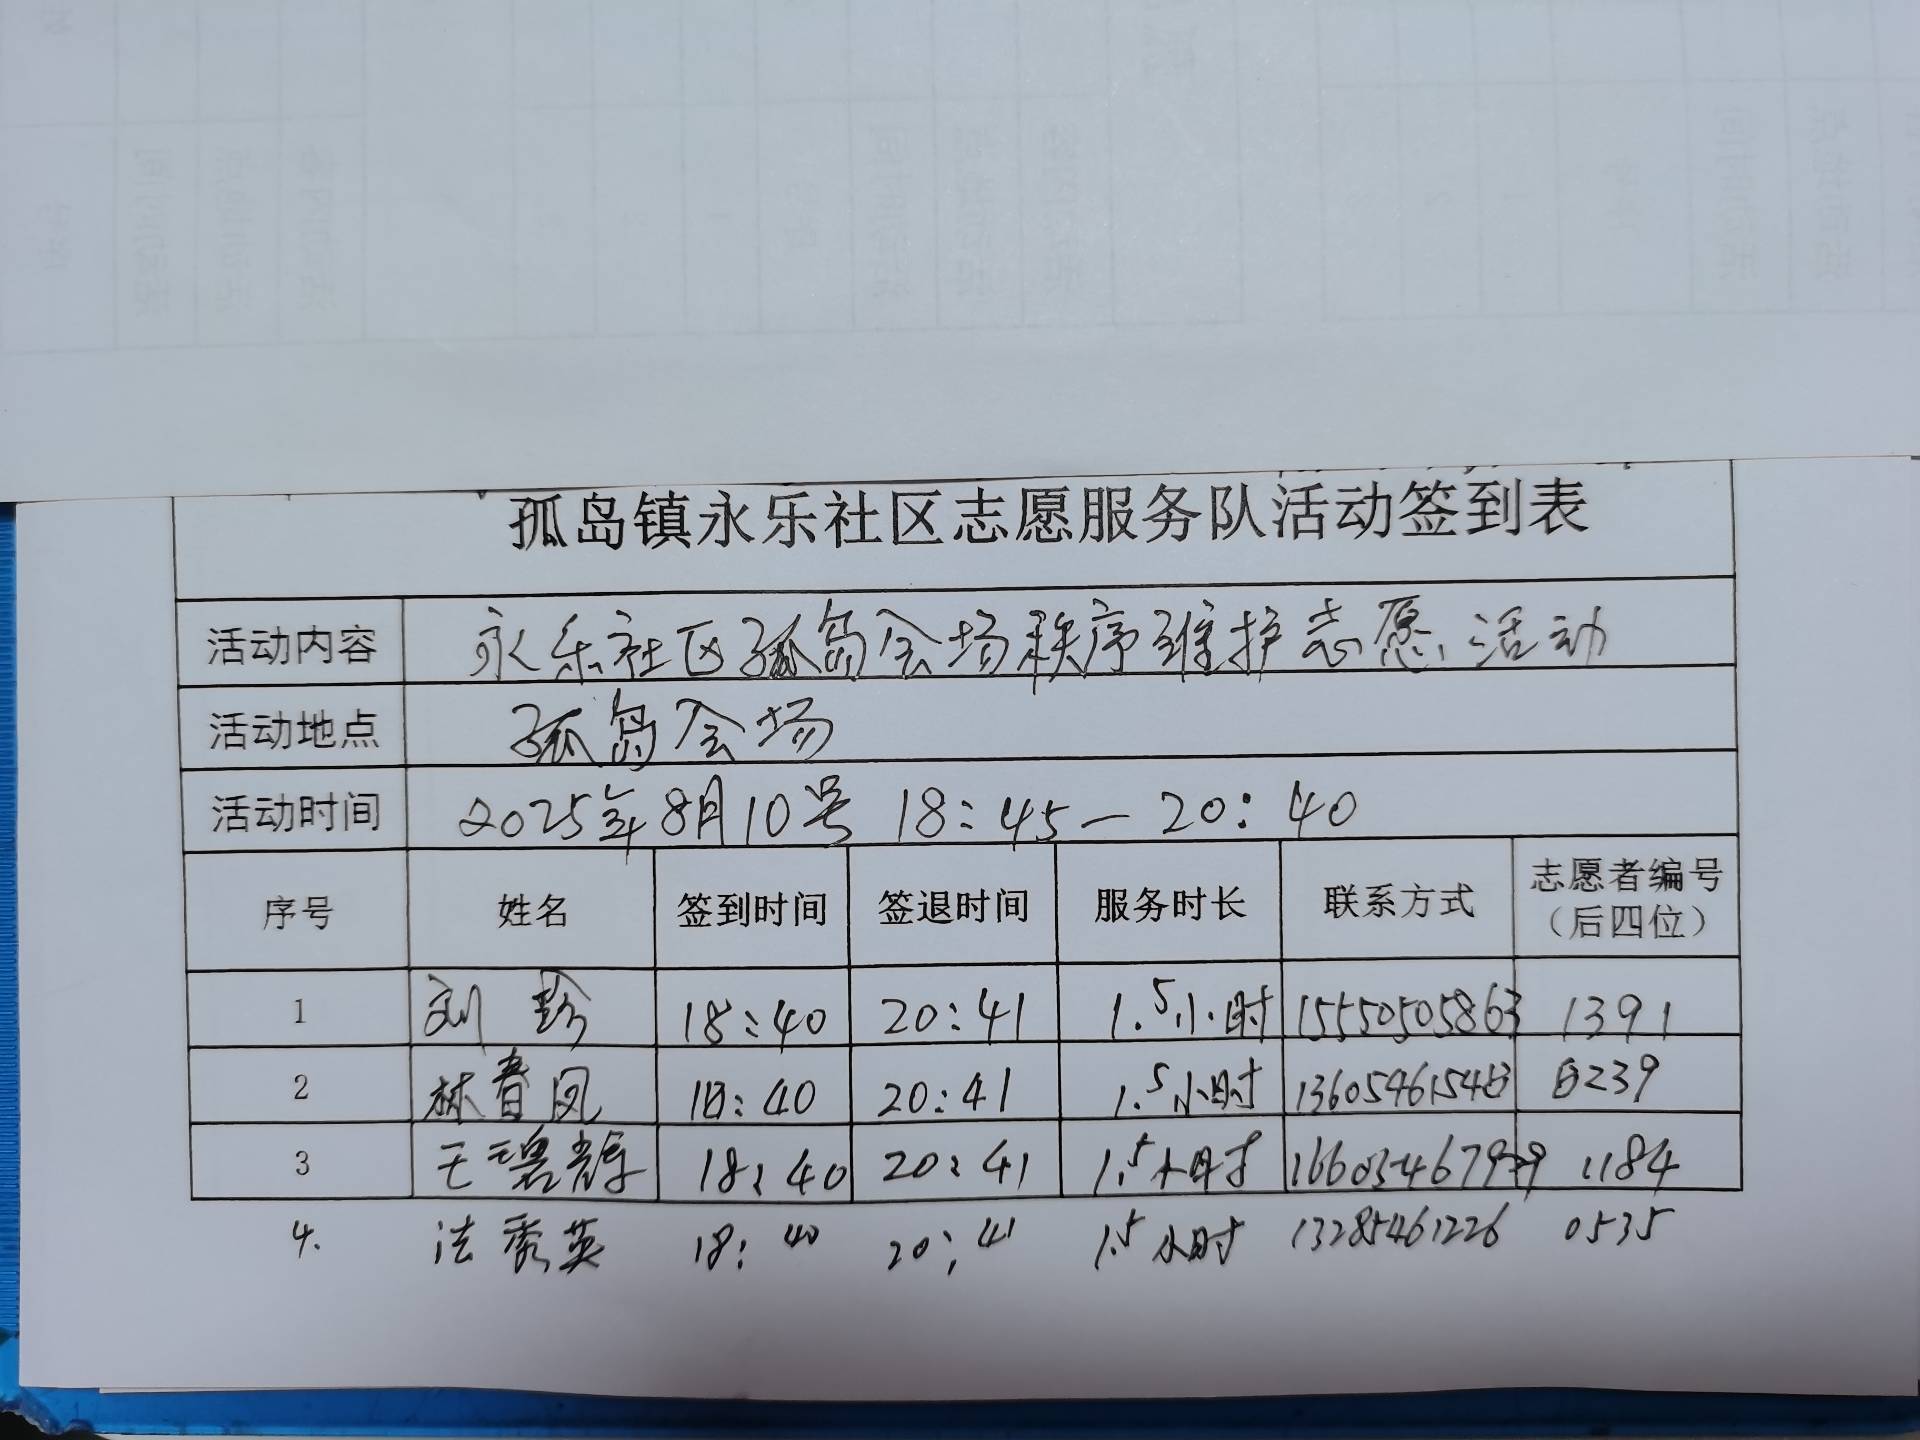 孤岛镇永乐社区志愿服务队活动签到表
活动内容 永乐社区孤岛会场秩序维护志愿活动
活动地点 孤岛会场
活动时间 2025年8月10号 18:45—20:40
序号 姓名 签到时间 签退时间 服务时长 联系方式 志愿者编号（后四位）
1 刘珍 18:40 20:41 1.5小时 15550505863 1391
2 林春凤 18:40 20:41 1.5小时 0239
3 王碧辉 18:40 20:41 1.5小时 1184
4. 法秀英 18:40 20:41 1.5小时 13285461226 0535